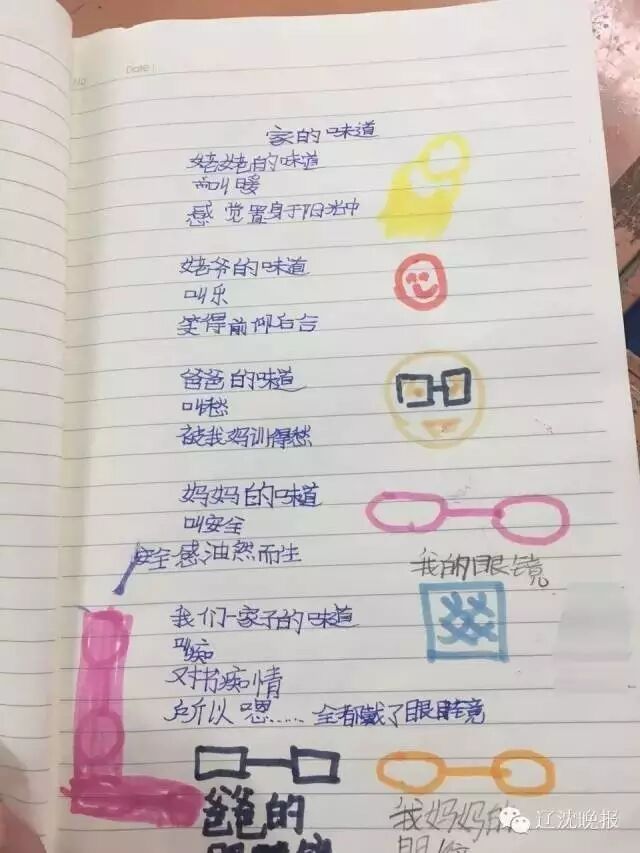 No
Date
家的味道
姥姥的味道
叫暖
感觉置身于阳光中
姥爷的味道
叫乐
笑得前仰后合
爸爸的味道
叫愁
被我妈训得愁
妈妈的味道
叫安全
安全感油然而生
我的眼镜
我们一家子的味道
叫痴
对书痴情
所以嗯……全都戴了眼镜
爸爸的
眼睛
我妈妈的
眼镜
辽沈晚报